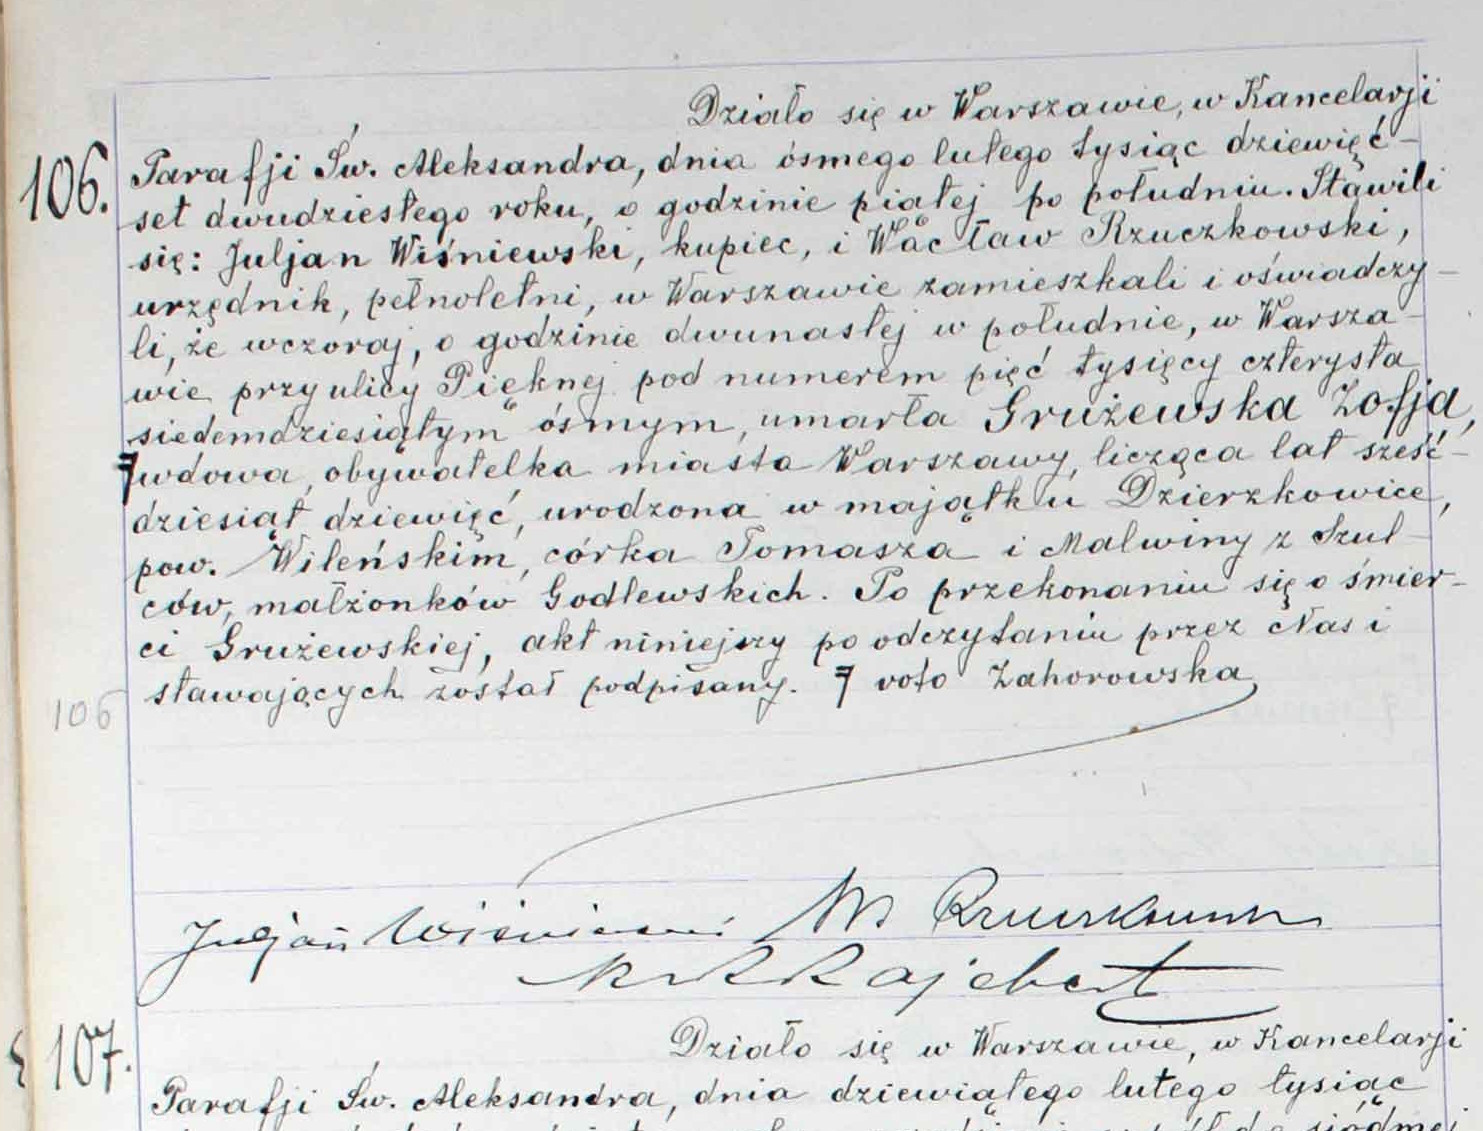 Działo się w Warszawie, w Kancelarji
106. Parafji Św. Aleksandra, dnia ósmego lutego tysiąc dziewięć-
set dwudziestego roku, o godzinie piątej po południu. Stawili
się: Juljan Wiśniewski, kupiec, i Wacław Rzuczkowski,
urzędnik, pełnoletni, w Warszawie zamieszkali i oświadczy-
li, że wczoraj, o godzinie dwunastej w południe, w Warsza-
wie przy ulicy Pięknej pod numerem pięć tysięcy czterysta
siedemdziesiątym ósmym, umarła Grużewska Zofja,
7 wdowa, obywatelka miasta Warszawy, licząca lat sześć-
dziesiąt dziewięć, urodzona w majątku Dzierzkowice,
pow. Wileńskim, córka Tomasza i Malwiny z Szul-
ców, małżonków Godlewskich. Po przekonaniu się o śmier-
ci Grużewskiej, akt niniejszy po odczytaniu przez Nas i
stawających został podpisany. 7 voto Zahorowska
106
Juljan Wiśniewski W Rzuczkowski
107. Działo się w Warszawie, w Kancelarji
Parafji Św. Aleksandra, dnia dziewiątego lutego tysiąc